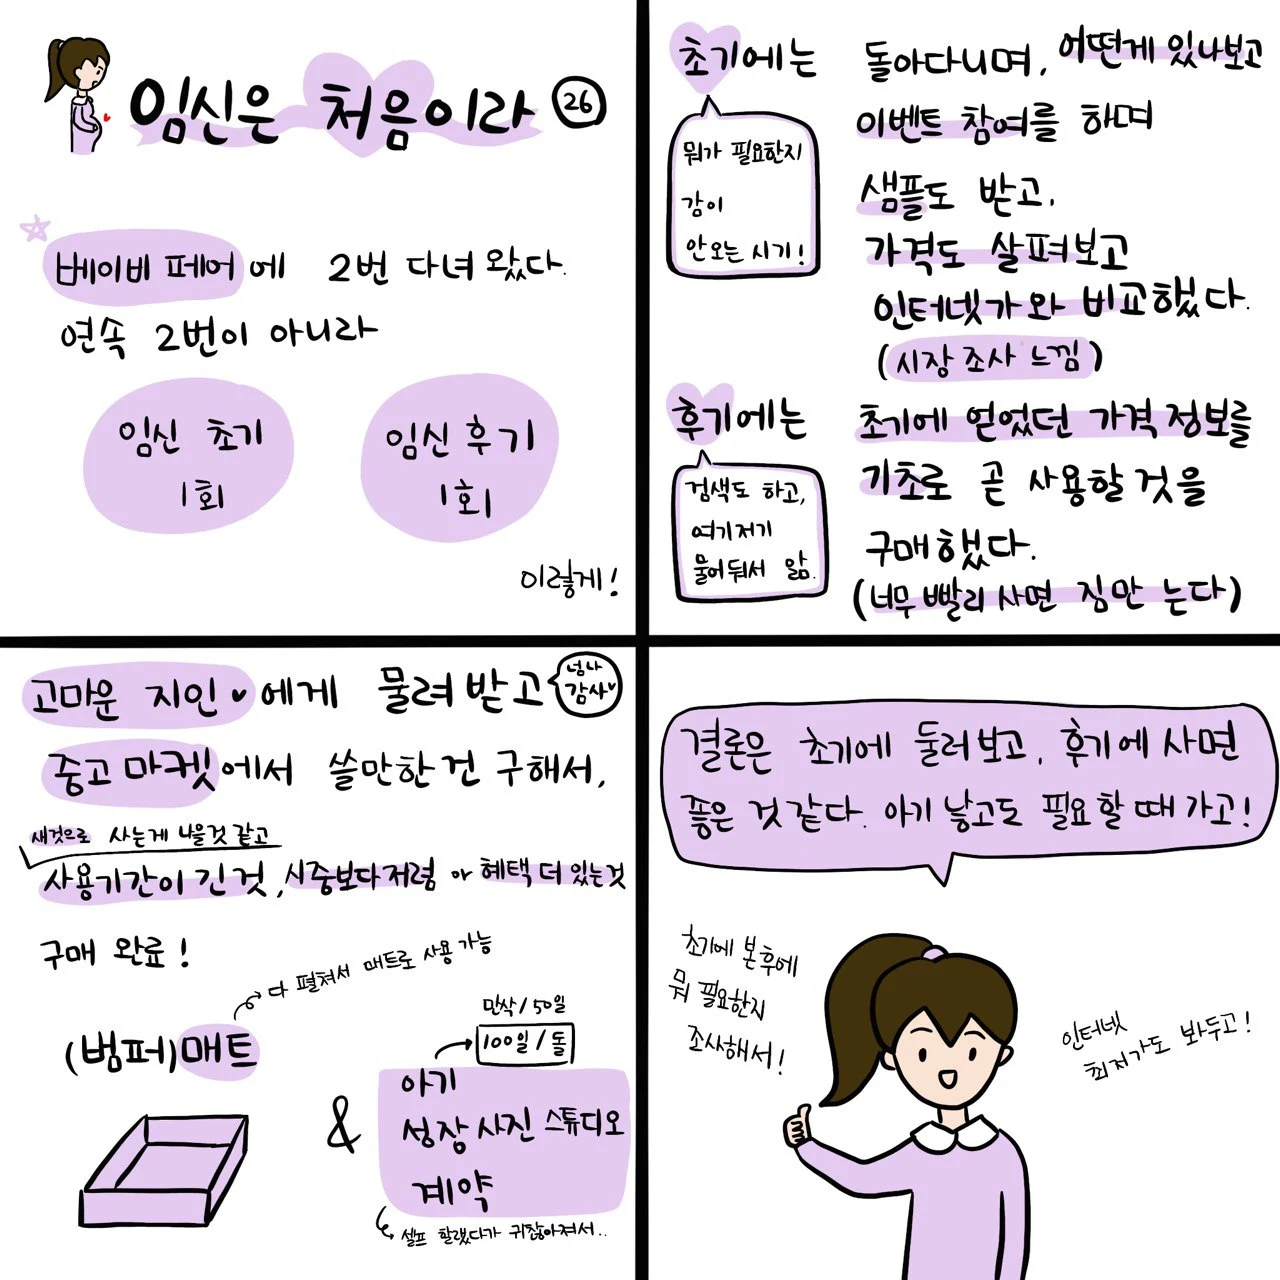 임신은 처음이라 26
베이비 페어에 2번 다녀왔다.
연속 2번이 아니라
임신 초기
1회
임신 후기
1회
이렇게!
초기에는
뭐가 필요한지
감이
안오는 시기!
돌아다니며, 어떤게 있나보고
이벤트 참여를 하며
샘플도 받고,
가격도 살펴보고
인터넷가와 비교했다.
(시장 조사 느낌)
후기에는
검색도 하고,
여기저기
물어둬서 앎.
초기에 얻었던 가격 정보를
기초로 곧 사용할 것을
구매했다.
(너무 빨리 사면 짐만 는다)
고마운 지인♥에게 물려받고
넘나
감사♥
중고 마켓에서 쓸만한건 구해서,
새것으로 사는게 나을것 같고
사용기간이 긴 것, 시중보다 저렴 or 혜택 더 있는것
구매 완료!
다 펼쳐서 매트로 사용 가능
(범퍼)매트
&
만삭/50일
100일/돌
아기
성장 사진 스튜디오
계약
셀프 할랬다가 귀찮아져서..
결론은 초기에 둘러보고, 후기에 사면
좋은 것 같다. 아기 낳고도 필요할 때 가고!
초기에 본후에
뭐 필요한지
조사해서!
인터넷
최저가도 봐두고!